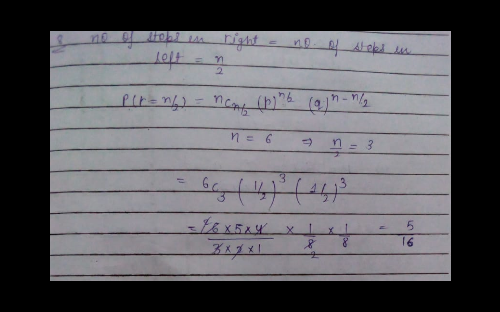 3. no of steps in right = no. of steps in
left = n/2
P(r = n/2) = nC n/2 (p)^n/2 (q)^n - n/2
n = 6 ⇒ n/2 = 3
= 6C3 (1/2)^3 (1/2)^3
= 6 × 5 × 4 / 3 × 2 × 1 × 1/8 × 1/8 = 5/16